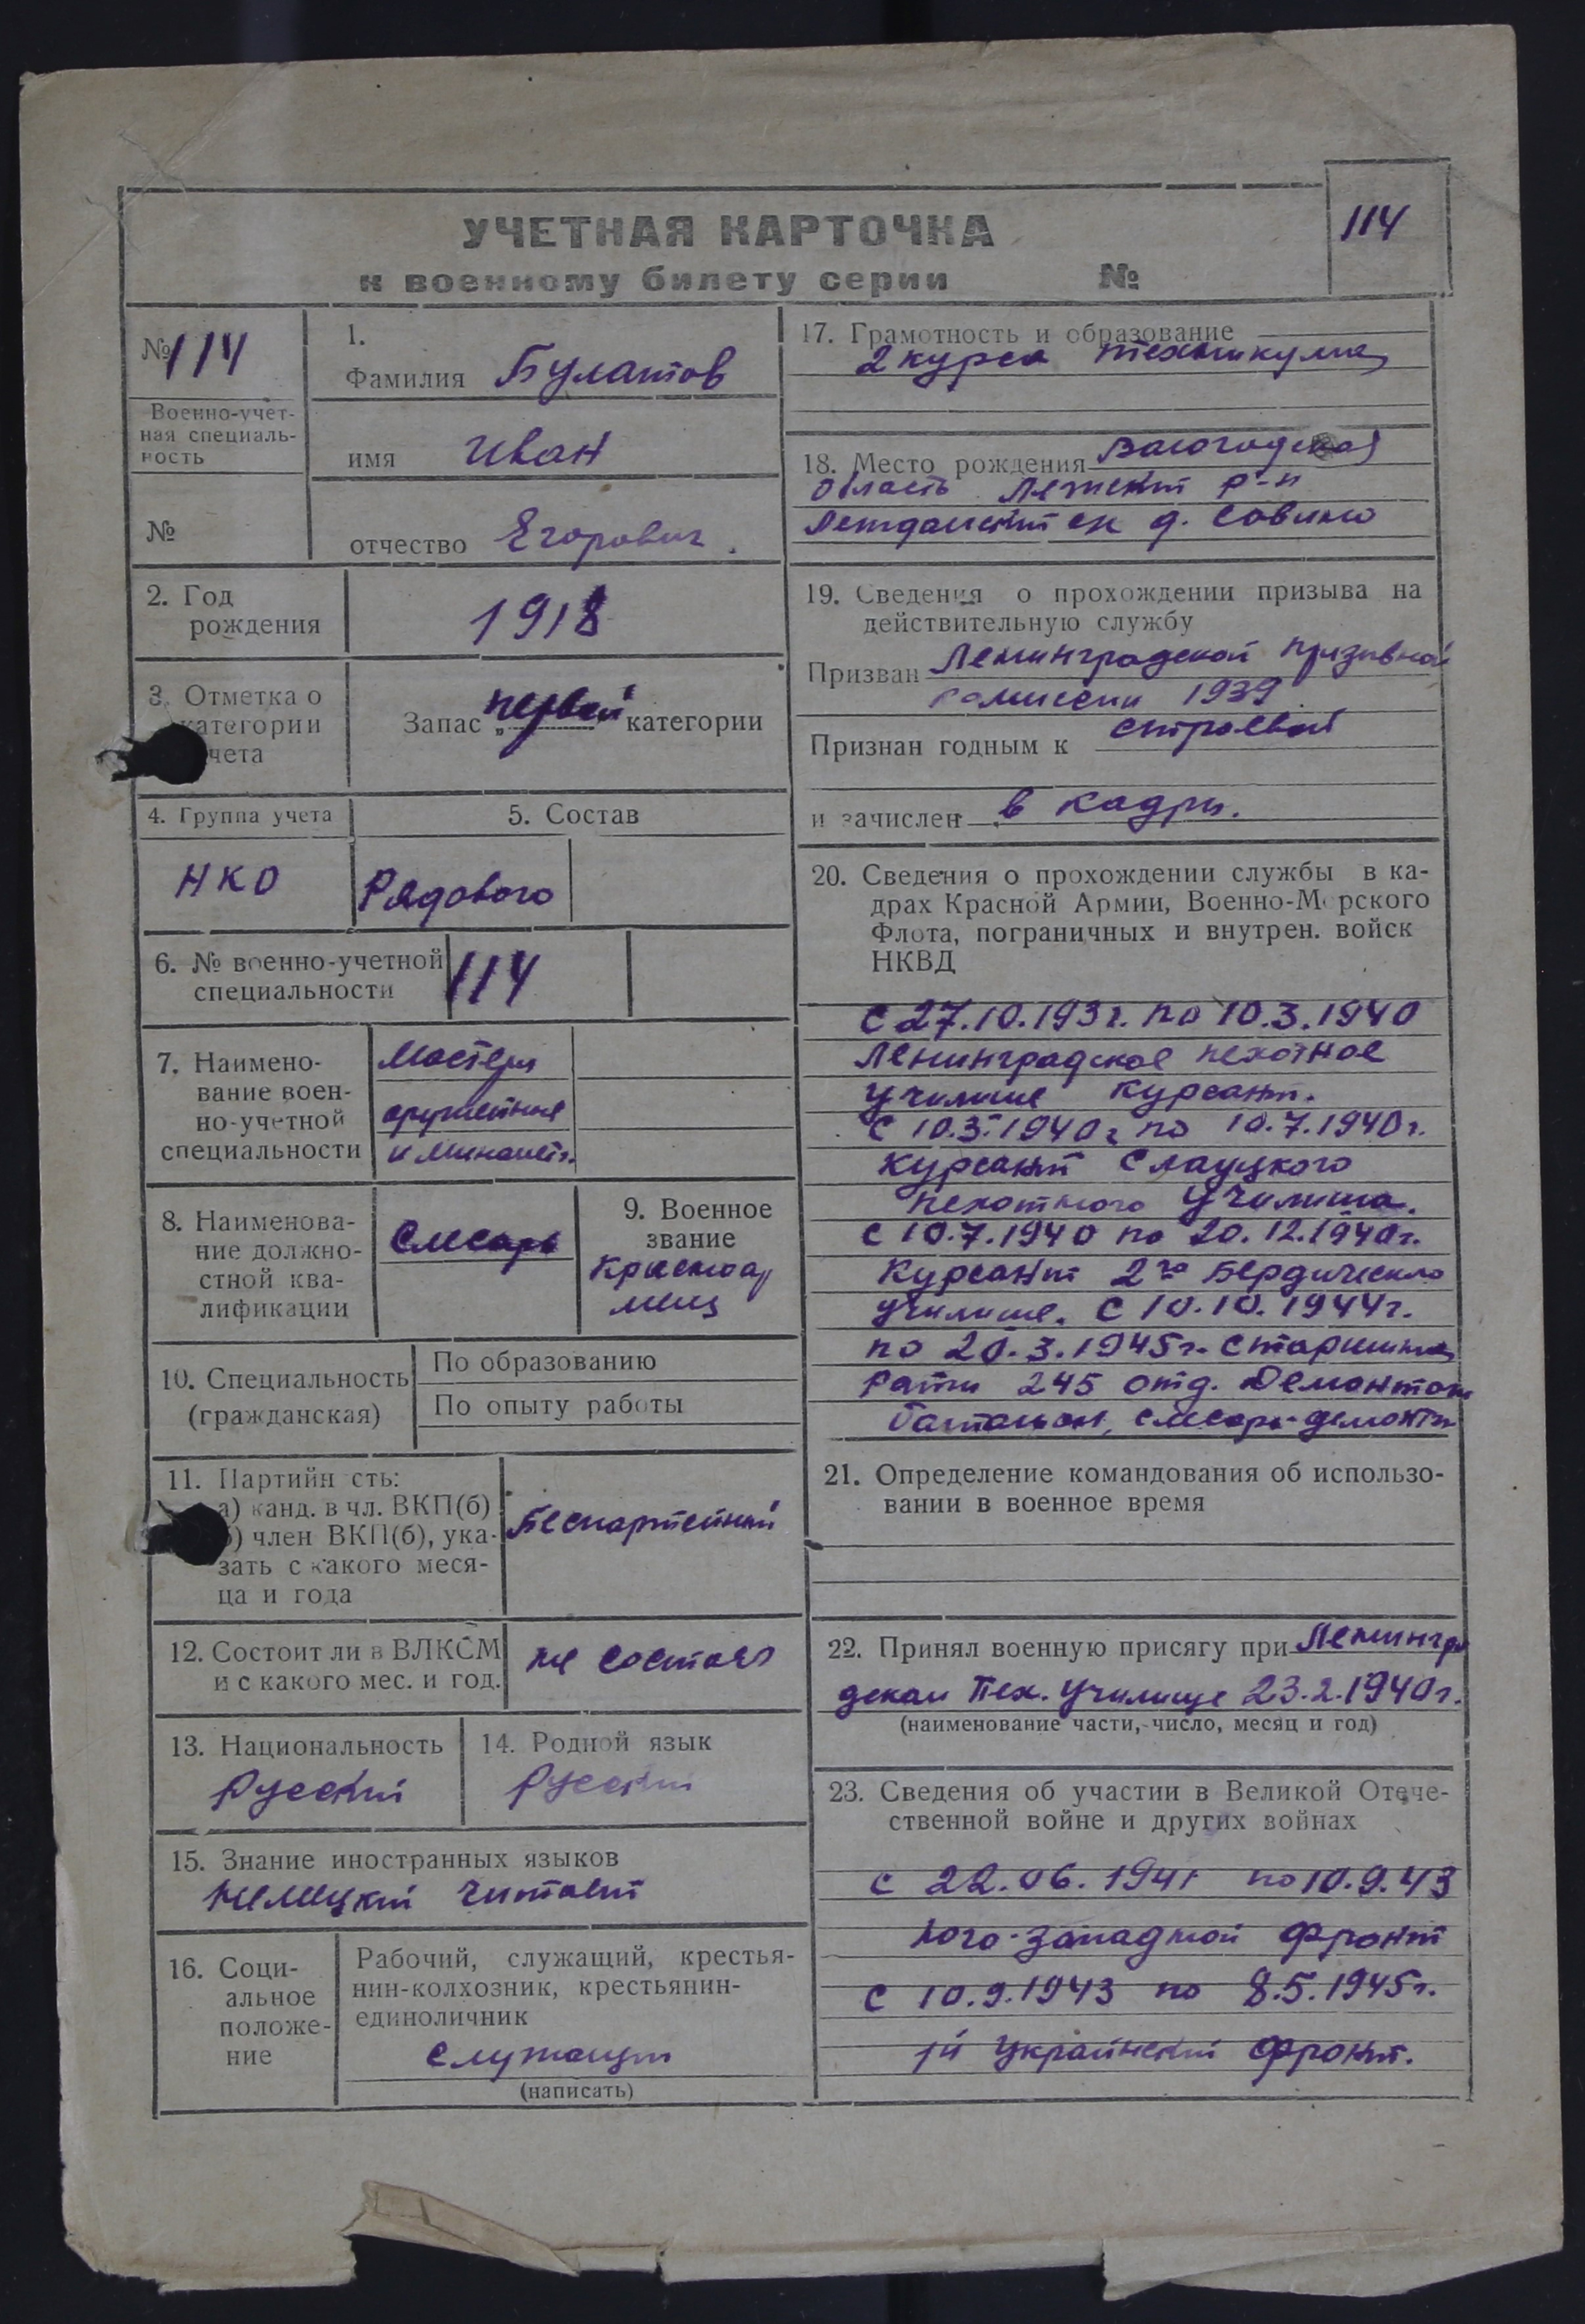 114
УЧЕТНАЯ КАРТОЧКА
к военному билету серии №
№ 114
Военно-учет-
ная специаль-
ность
№
1.
Фамилия Булатов
имя Иван
отчество Егорович.
2. Год
рождения
1918
3. Отметка о
категории
учета
Запас „первой" категории
4. Группа учета
НКО
5. Состав
Рядового
6. № военно-учетной
специальности
114
7. Наимено-
вание воен-
но-учетной
специальности
Мастера
оружейные
и минометн.
8. Наименова-
ние должно-
стной ква-
лификации
Слесарь
9. Военное
звание
Красноар
меец
10. Специальность
(гражданская)
По образованию
По опыту работы
11. Партийн сть:
а) канд. в чл. ВКП(б)
б) член ВКП(б), ука-
зать с какого меся-
ца и года
Беспартейный
12. Состоит ли в ВЛКСМ
и с какого мес. и год.
не состоял
13. Национальность
Русский
14. Родной язык
Русский
15. Знание иностранных языков
Немецкий читает
16. Соци-
альное
положе-
ние
Рабочий, служащий, крестья-
нин-колхозник, крестьянин-
единоличник
служащий
(написать)
17. Грамотность и образование
2 курса техникума
18. Место рождения Вологодская
область Лежский р-н
с/с д. Совино
19. Сведения о прохождении призыва на
действительную службу
Призван Ленинградской призывной
комиссии 1939
Признан годным к строевой
и зачислен в кадры.
20. Сведения о прохождении службы в ка-
драх Красной Армии, Военно-Морского
Флота, пограничных и внутрен. войск
НКВД
с 27.10.193 г. по 10.3.1940
Ленинградское пехотное
училище курсант.
с 10.3.1940г по 10.7.1940г.
курсант Слауцкого
пехотного училища.
с 10.7.1940 по 20.12.1940г.
Курсант 2го Бердическо
училище. с 10.10.1944г.
по 20.3.1945г. старшина
Роты 245 отд. Демонтаж
батальон, слесарь-демонта
21. Определение командования об использо-
вании в военное время
22. Принял военную присягу при Ленингра
дском Пех. училище 23.2.1940г.
(наименование части, число, месяц и год)
23. Сведения об участии в Великой Отече-
ственной войне и других войнах
с 22.06.1941 по 10.9.43
Юго-Западной фронт
с 10.9.1943 по 8.5.1945г.
1й Украинский фронт.